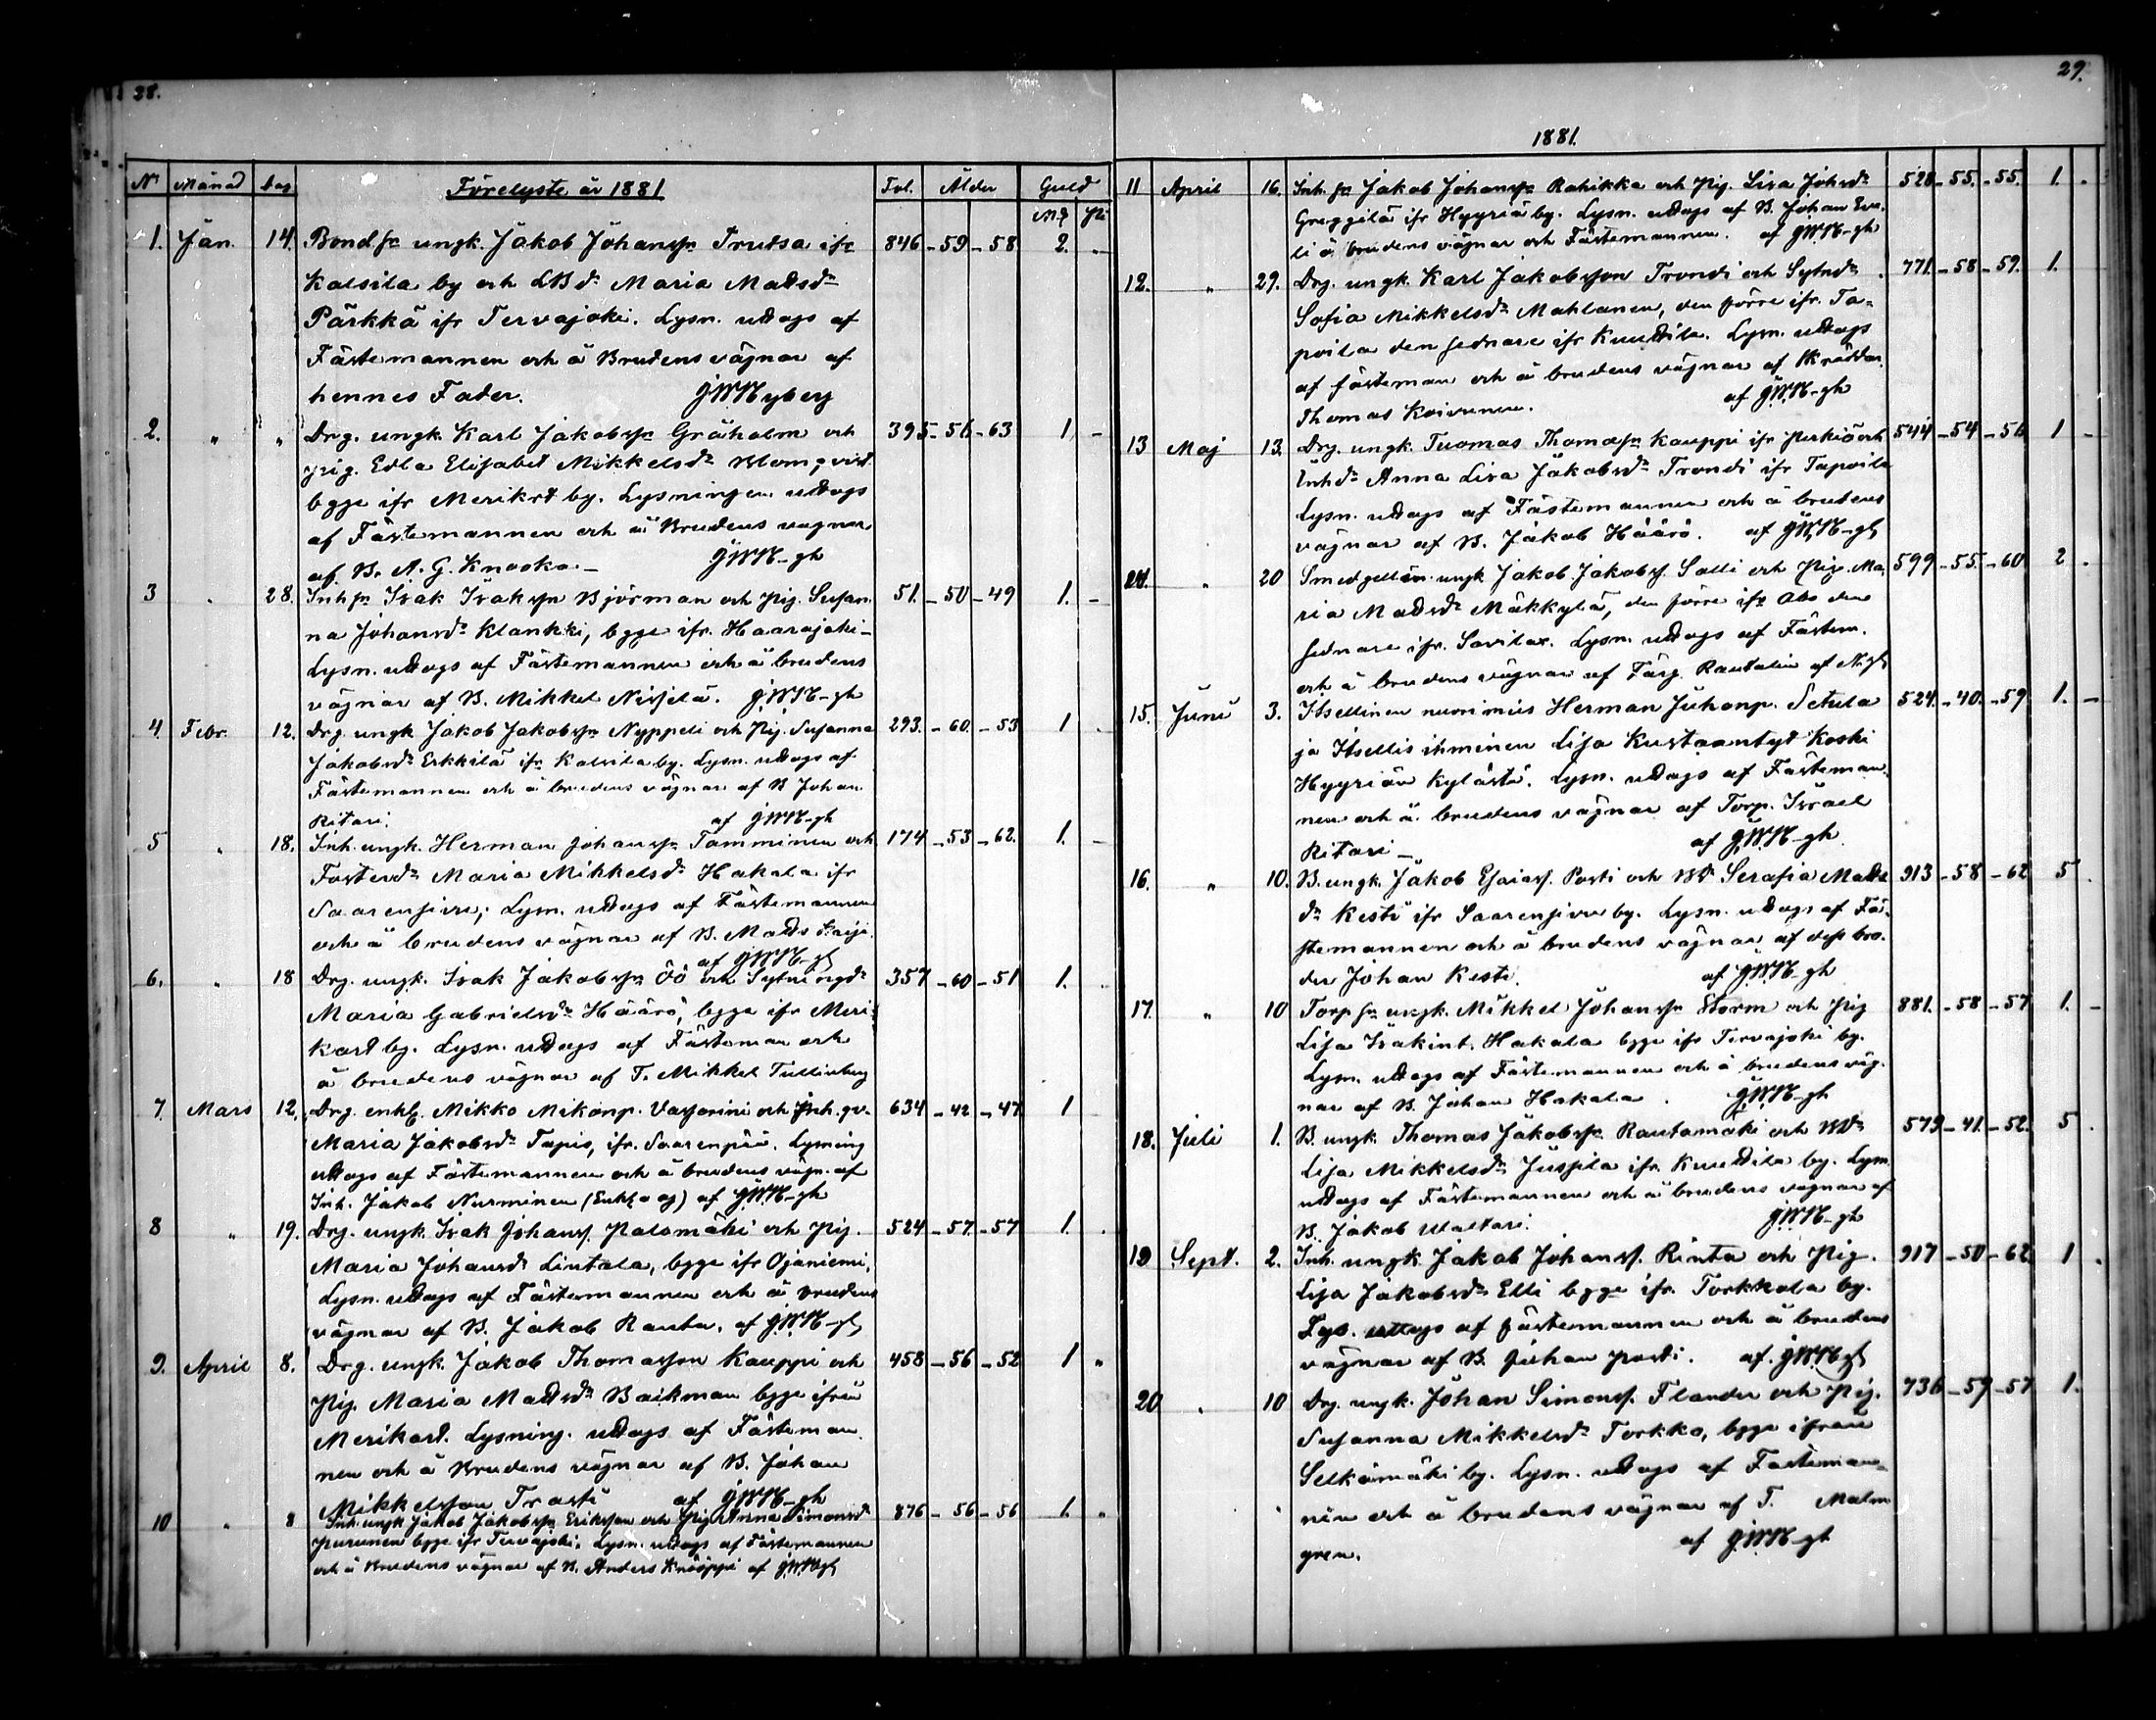 28.
N:o Månad dag Förelyste år 1881 Fol. Ålder Guld
Mk pi
1. Jan. 14. Bondsn ungk. Jakob Johanssn Trutsa ifr 846 - 59 - 58 2. -
Kalsila by och LBdr Maria Mattsdr
Pärkkä ifr Tervajoki. Lysn. uttags af
Fästemannen och å Brudens vägnar af
hennes Fader. JWNyberg
2. " " Drg. ungk. Karl Jakobssn Gråholm och 395 - 56 - 63 1 -
pig. Edla Elisabet Mikkelsdr Blomqvist
begge ifr Merikart by. Lysningen uttags
af Fästemannen och å Brudens vägnar
af B. A. G. Knaska. - JWN-gh
3 . 28. Inhsn Isak Isakssn Björman och Pig. Susan- 51. - 50 - 49 1. -
na Johansdr Klankki, begge ifr. Haarajoki -
Lysn. uttags af Fästemannen och å brudens
vägnar af B. Mikkel Nissilä. JWN-gh
4. Febr. 12. Drg. ungk Jakob Jakobssn Nyppeli och Pig. Susanna 293. - 60. - 53 1 .
Jakobsdr Erkkilä ifr Kalsila by. Lysn. uttags af
Fästemannen och å brudens vägnar af B Johan
Ritari. af JWN-gh
5 . 18. Inh. ungk. Herman Johanssn Tamminen och 174 - 53 - 62. 1. -
Fosterdr Maria Mikkelsdr Hakala ifr
Saarensivu; Lysn. uttags af Fästemannen
och å brudens vägnar af B. Matts
af JWN-gh
6. . 18 Drg. ungk. Isak Jakobssn Öö och Sytningdr 357 - 60 - 51 1. .
Maria Gabrielsdr Häärö, begge ifr Meri-
kart by. Lysn. uttags af Fästeman och
å brudens vägnar af T. Mikkel Tullinberg
7. Mars 12. Drg. enkl. Mikko Mikonp. Vassorini och Inh. qv. 634 - 42 - 47 1
Maria Jakobsdr Tapio, ifr. Saarenpää. Lysning
uttags af Fästemannen och å brudens vägn. af
Inh. Jakob Nurminen af JWN-gh
8 " 19. Drg. ungk. Isak Johanss. Palomäki och Pig. 524 - 57. - 57 1. .
Maria Johansdr Lintala, begge ifr Ojaniemi,
Lysn. uttags af Fästemannen och å brudens
vägnar af B. Jakob Ranta. af JWN-gh
9. April 8. Drg. ungk. Jakob Thomasson Kauppi och 458 - 56 - 52 1 "
Pig. Maria Mattsdr Backman begge ifrån
Merikart. Lysning. uttags af Fästeman-
nen och å Brudens vägnar af B. Johan
Mikkelsson Trasti af JWN-gh
10 " 8 Inh. ungk Jakob Jakobssn Eriksson och Pig Anna Simonsdr 876 - 56 - 56 1. "
Purunen begge ifr Tervajoki. Lysn. uttags af Fästemannen
och å Brudens vägnar af B. Anders Knääppi af JWN-gh
29.
1881.
11 April 16. Inh. sn Jakob Johanssn Rahikka och Pig. Lisa Johsdr 528 - 55. - 55. 1. .
Greggilä ifr Hyyriä by. Lysn. uttags af B. Johan Eve-
li å brudens vägnar och Fästemannen. af JWN-gh
12. " 29. Drg. ungk. Karl Jakobsson Trondi och Sytndr 771. - 58 - 59. 1.
Sofia Mikkelsdr Mahlanen, den förre ifr. Ta-
poila den sednare ifr Kuuttila. Lysn. uttags
af fästeman och å brudens vägnar af Skräddar.
Thomas Koivunen. af JWN-gh
13 Maj 13. Drg. ungk. Tuomas Thomassn Kauppi ifr Perkiö och 544 - 54 - 56 1 -
Inhdr Anna Lisa Jakobsdr Trondi ifr Tapoila
Lysn. uttags af Fästemannen och å brudens
vägnar af B. Jakob Häärö. af JWN-gh
14. " 20 Smedgesällen. ungk Jakob Jakobss. Salli och Pig. Ma- 599 - 55. - 60 2 .
ria Mattsdr Mäkkylä, den förre ifr Åbo den
sednare ifr. Savilax. Lysn. uttags af Fästem.
och å brudens vägnar af Färg. Rautalin af N-gh
15. Juni 3. Itsellinen nuorimies Herman Juhanp. Setula 524. - 40. - 59 1. -
ja Itsellis ihminen Lisa Kustaantyt Koski
Hyyriän kylästä. Lysn. uttags af Fästeman-
nen och å brudens vägnar af Torp. Israel
Ritari - af JWN-gh
16. " 10. B. ungk. Jakob Esaiass. Posti och Bdr Serafia Matts 913 - 58 - 62 5 .
dr Kesti ifr Saarensivu by. Lysn. uttags af Fä-
stemannen och å brudens vägnar af dess bro-
der Johan Kesti. af JWN-gh
17. " 10 Torpsn ungk. Mikkel Johanssn Storm och Pig 881. - 58 - 57 1. -
Lisa Isakint. Hakala begge ifr Tervajoki by.
Lysn. uttags af Fästemannen och å brudens väg-
nar af B. Johan Hakala. JWN-gh
18. Juli 1. B. ungk. Thomas Jakobssn Rautamäki och Bdr 579 - 41. - 52. 5 .
Lisa Mikkelsdr Jussila ifr. Kuuttila by. Lysn
uttags af Fästemannen och å brudens vägnar af
B. Jakob Waltari. JWN-gh
19 Sept. 2. Inh. ungk. Jakob Johanss. Rinta och Pig. 917 - 50 - 62 1 .
Lisa Jakobsdr Elli begge ifr. Torkkala by.
Lys. uttags af fästemannen och å brudens
vägnar af B. Juhan Posti. af. JWN-gh
20 . 10 Drg. ungk. Johan Simonss. Flander och Pig. 736 - 59 - 57 1.
Susanna Mikkelsdr Torkko, begge ifrån
Selkämäki by. Lysn. uttags af Fästeman-
nen och å brudens vägnar af T. Malm
gren. af JWN-gh